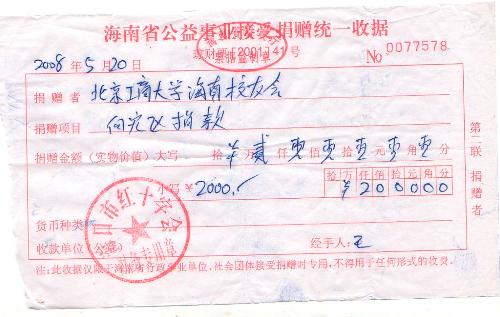 海南省公益事业接受捐赠统一收据
琼财票[2001]41号
No 0077578
2008 年 5 月 20 日
捐赠者 北京工商大学海南校友会
捐赠项目 向灾区捐款
捐赠金额（实物价值）大写 拾 ¥ 万 贰 仟 零 佰 零 拾 零 元 零 角 零 分
小写 ¥ 2000.-
拾 万 仟 佰 拾 元 角 分
¥ 2 0 0 0 0 0
货币种类
收款单位
经手人: 王
市红十字会
专用章
第二联 捐赠者
注:此收据仅限于海南省行政事业单位、社会团体接受捐赠时专用,不得用于任何形式的收费。